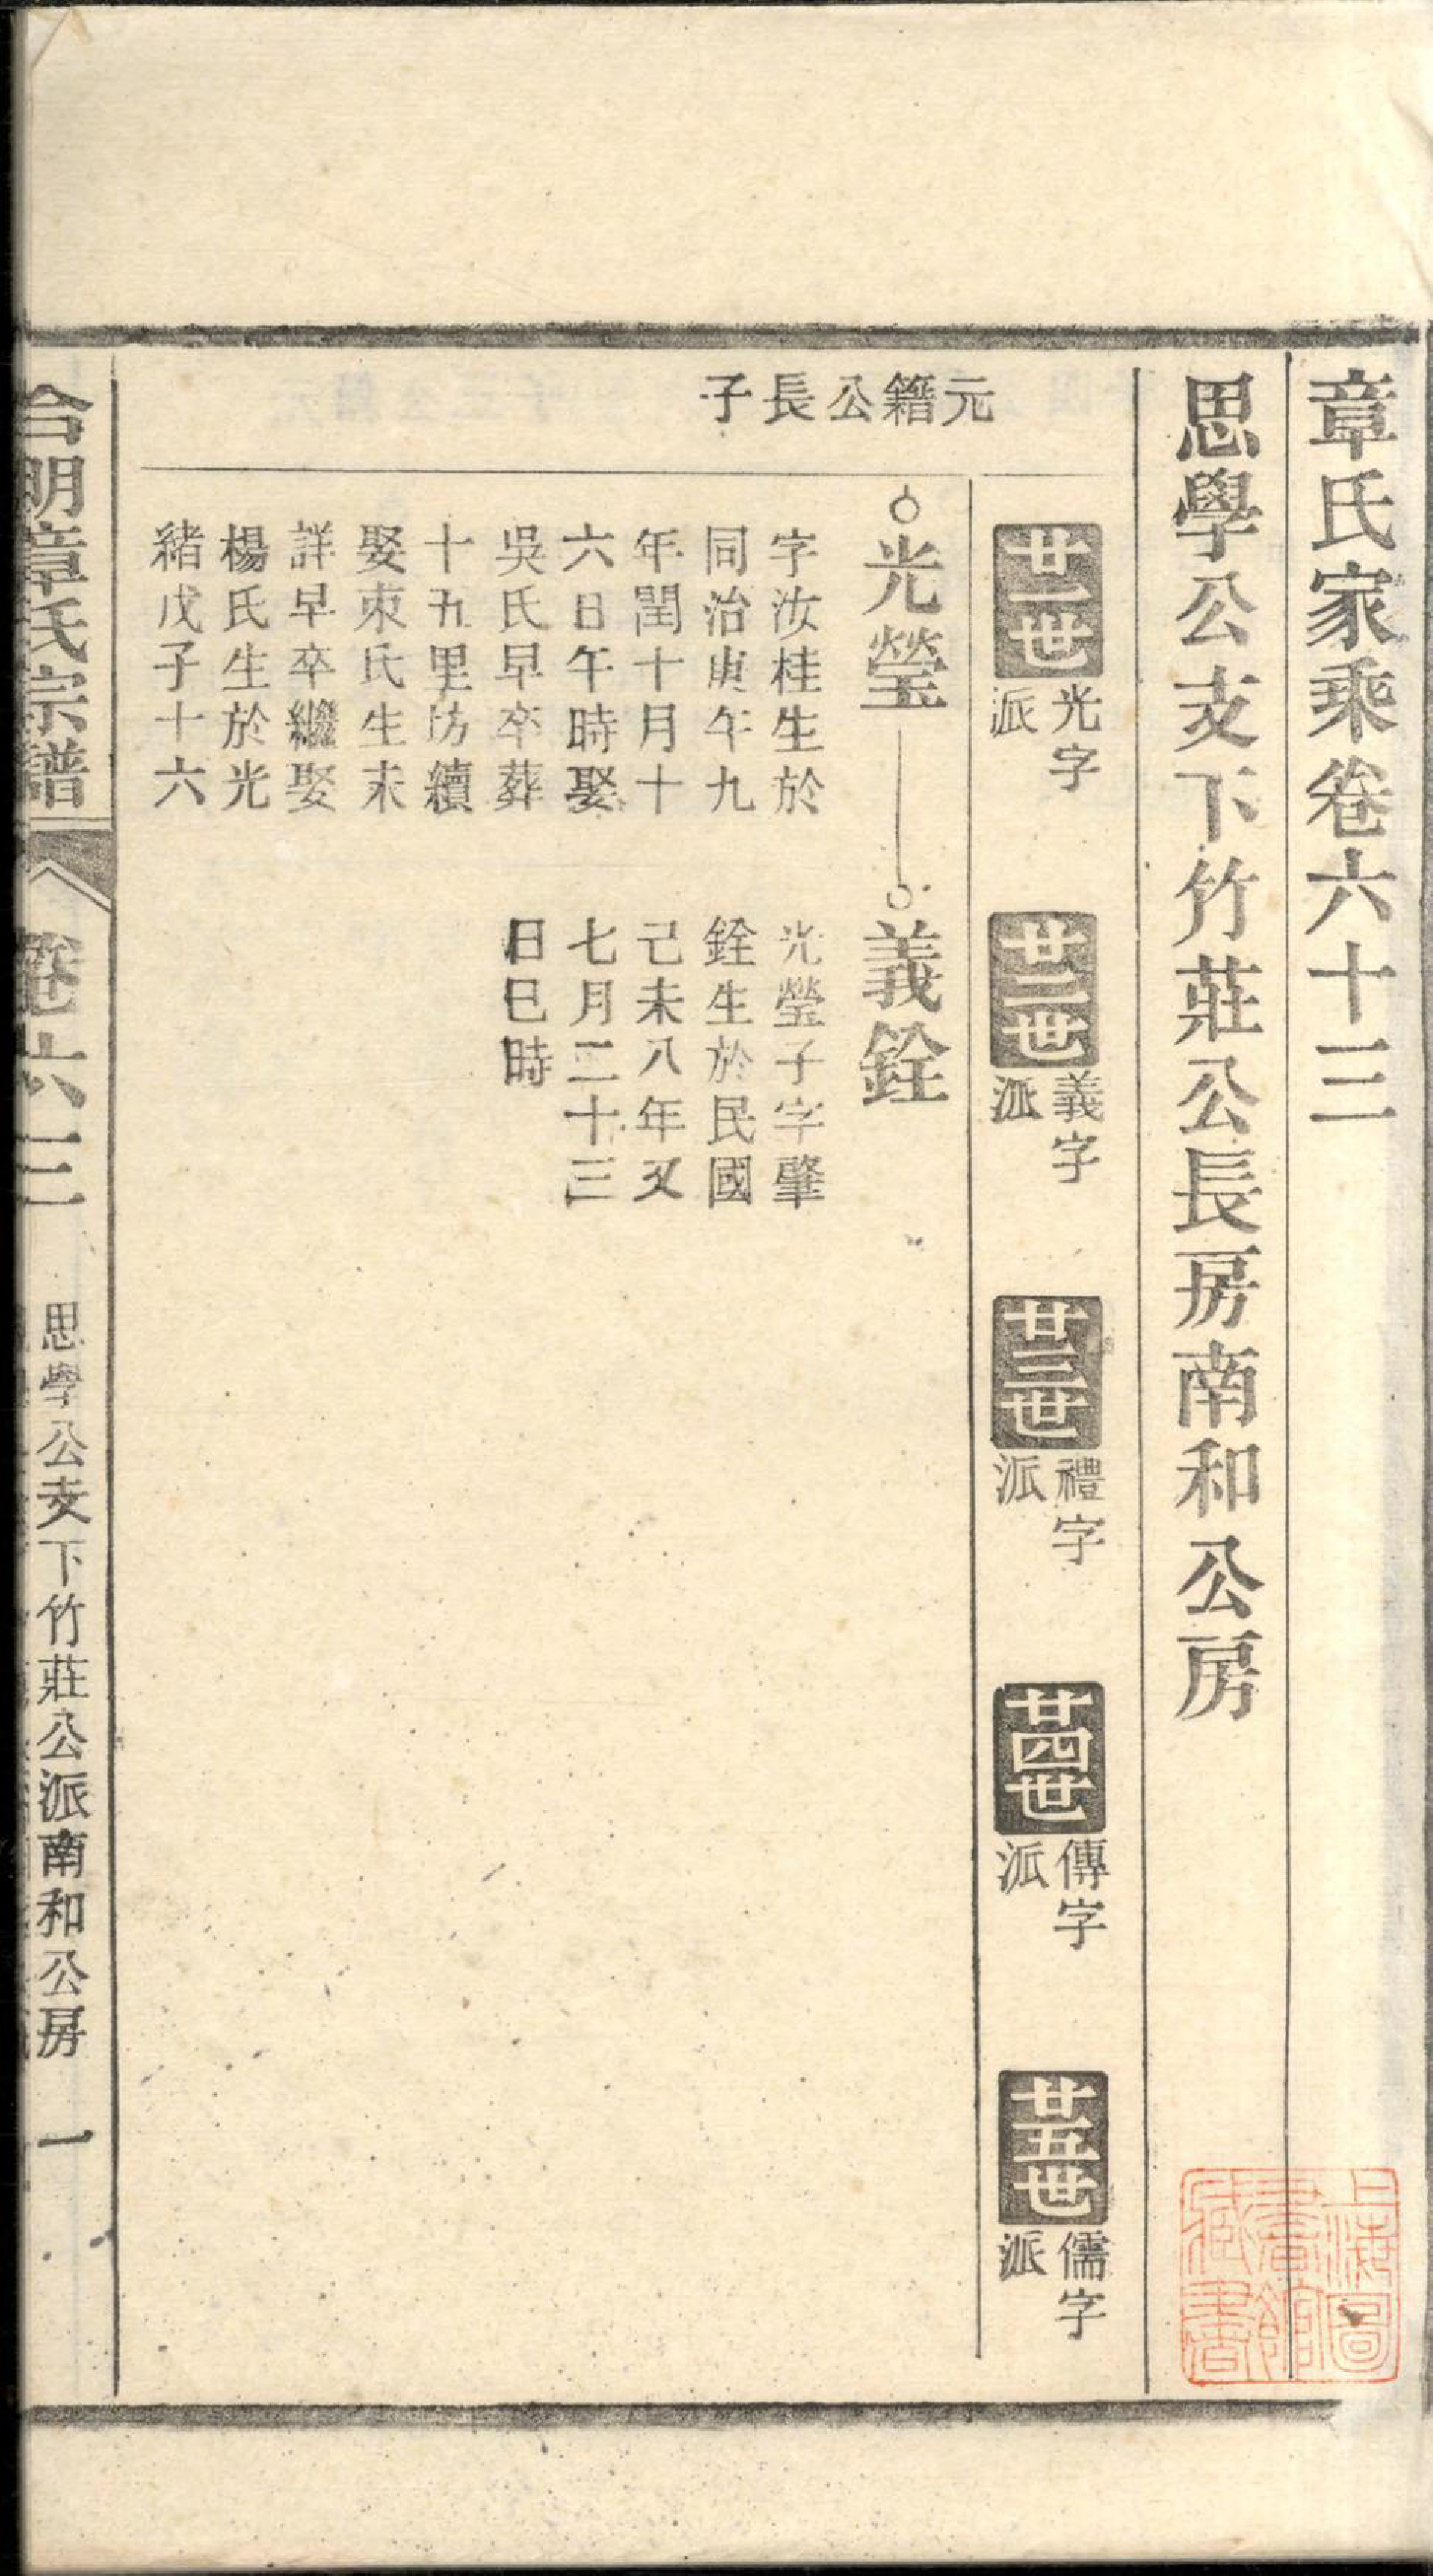 章氏家乘卷六十三
思學公支下竹莊公長房南和公房
廿一世
光字
派
廿二世
義字
派
廿三世
禮字
派
廿四世
傳字
派
廿五世
儒字
派
元籍公長子
光瑩
字汝桂生於
同治庚午九
年閏十月十
六日午時娶
吳氏早卒葬
十五里坊續
娶朿氏生未
詳早卒繼娶
楊氏生於光
緒戊子十六
義銓
光瑩子字肇
銓生於民國
己未八年又
七月二十三
日巳時
合明章氏宗譜
卷六三
思學公支下竹莊公派南和公房
一
上海圖
書館
藏書